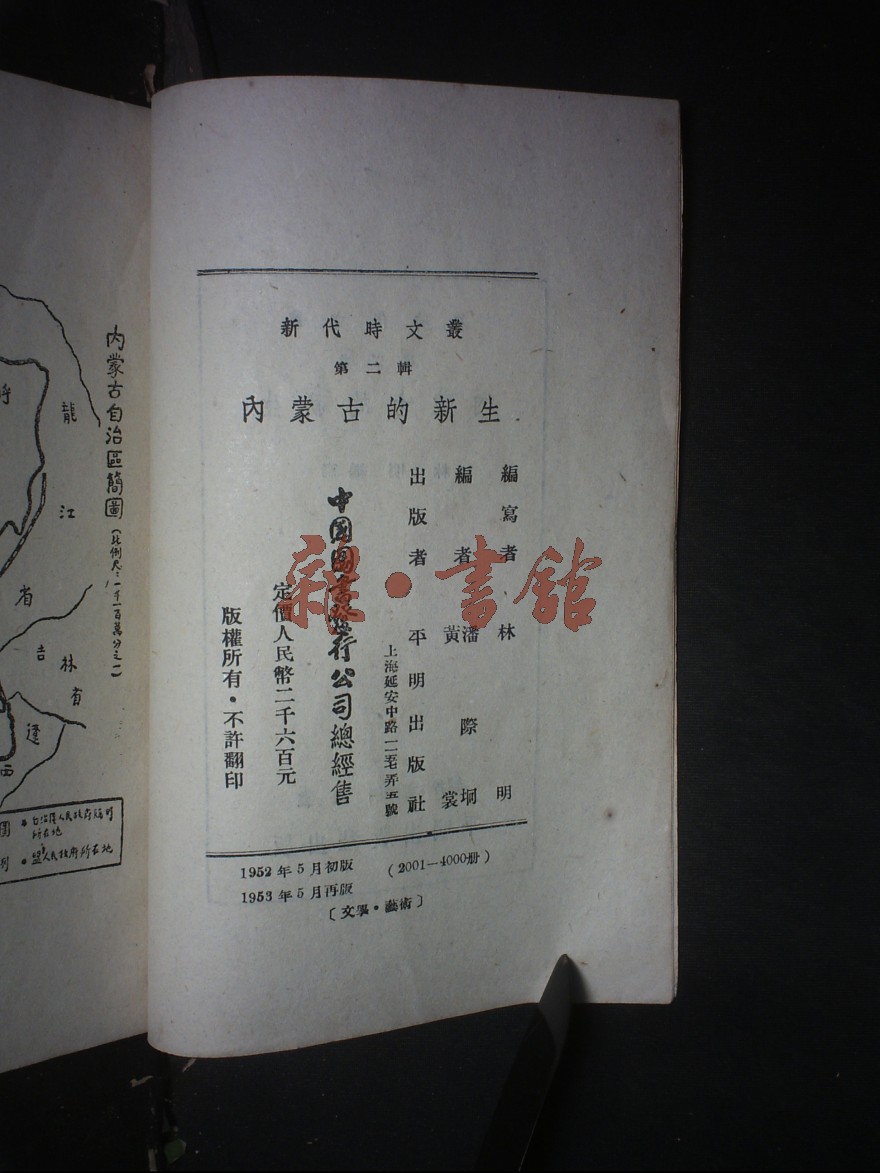 新代時文叢
第二輯
內蒙古的新生
編寫者 林明
編者 潘際坰
黃裳
出版者 平明出版社
上海延安中路弄五號
中國圖書發行公司總經售
定價人民幣二千六百元
版權所有・不許翻印
1952年5月初版 (2001—4000册)
1953年5月再版
〔文學・藝術〕
雜・書館
內蒙古自治區簡圖
(比例尺：一千一百萬分之一)
龍
江
省
吉
林
省
遼
西
盟人民政府所在地